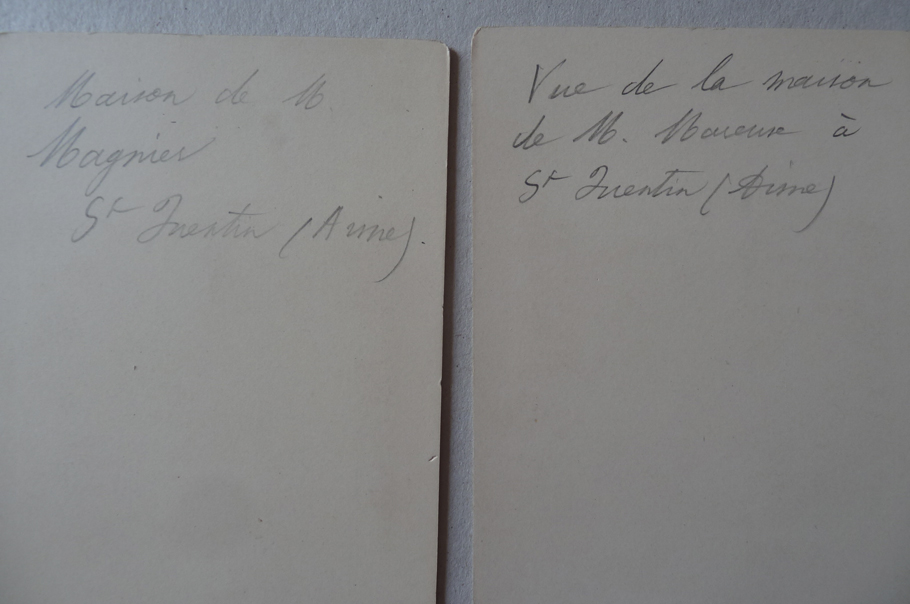 Maison de M.
Magnier
St Quentin (Aisne).
Vue de la maison
de M. Mareuse à
St Quentin (Aisne)